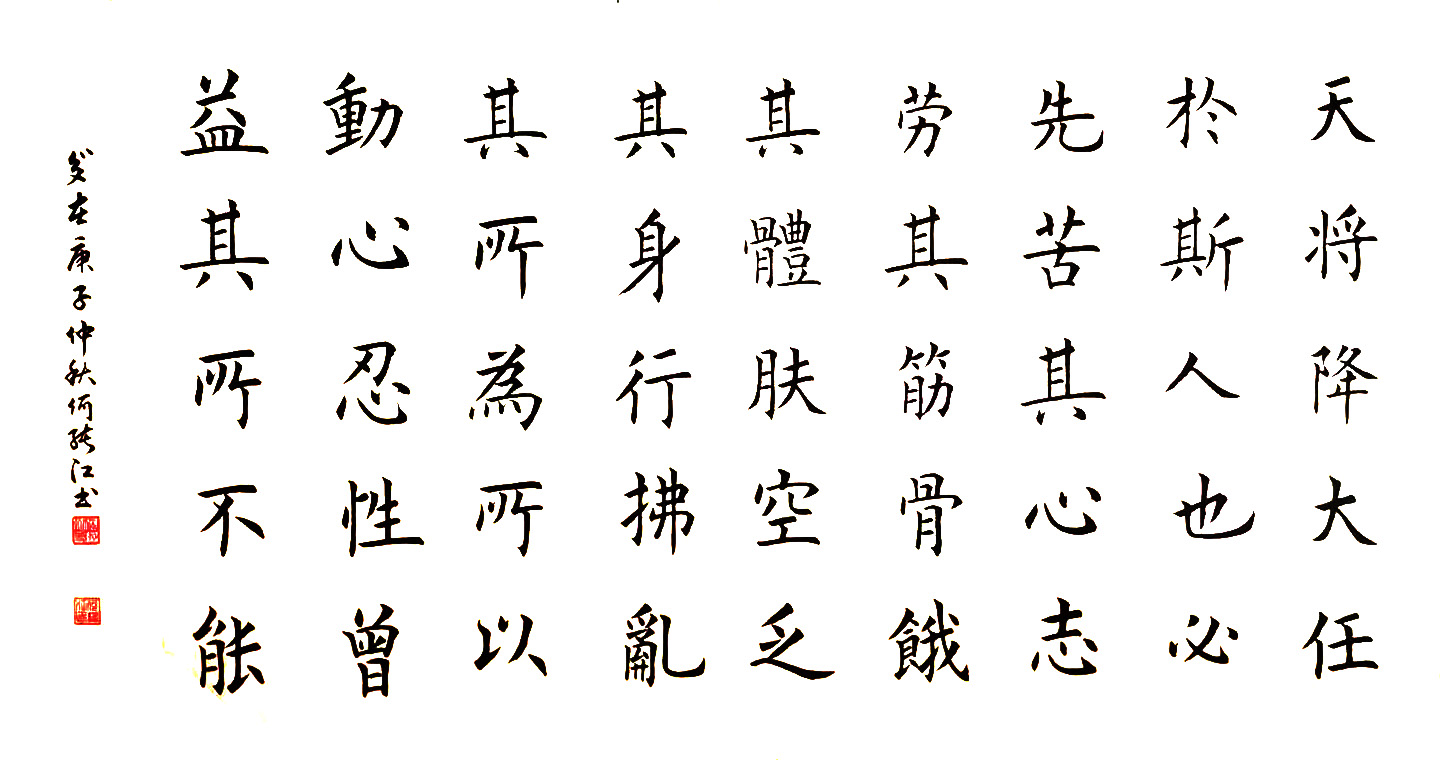 天将降大任
於斯人也必
先苦其心志
劳其筋骨餓
其體肤空乏
其身行拂亂
其所為所以
動心忍性曾
益其所不能
岁在庚子仲秋何晓江书